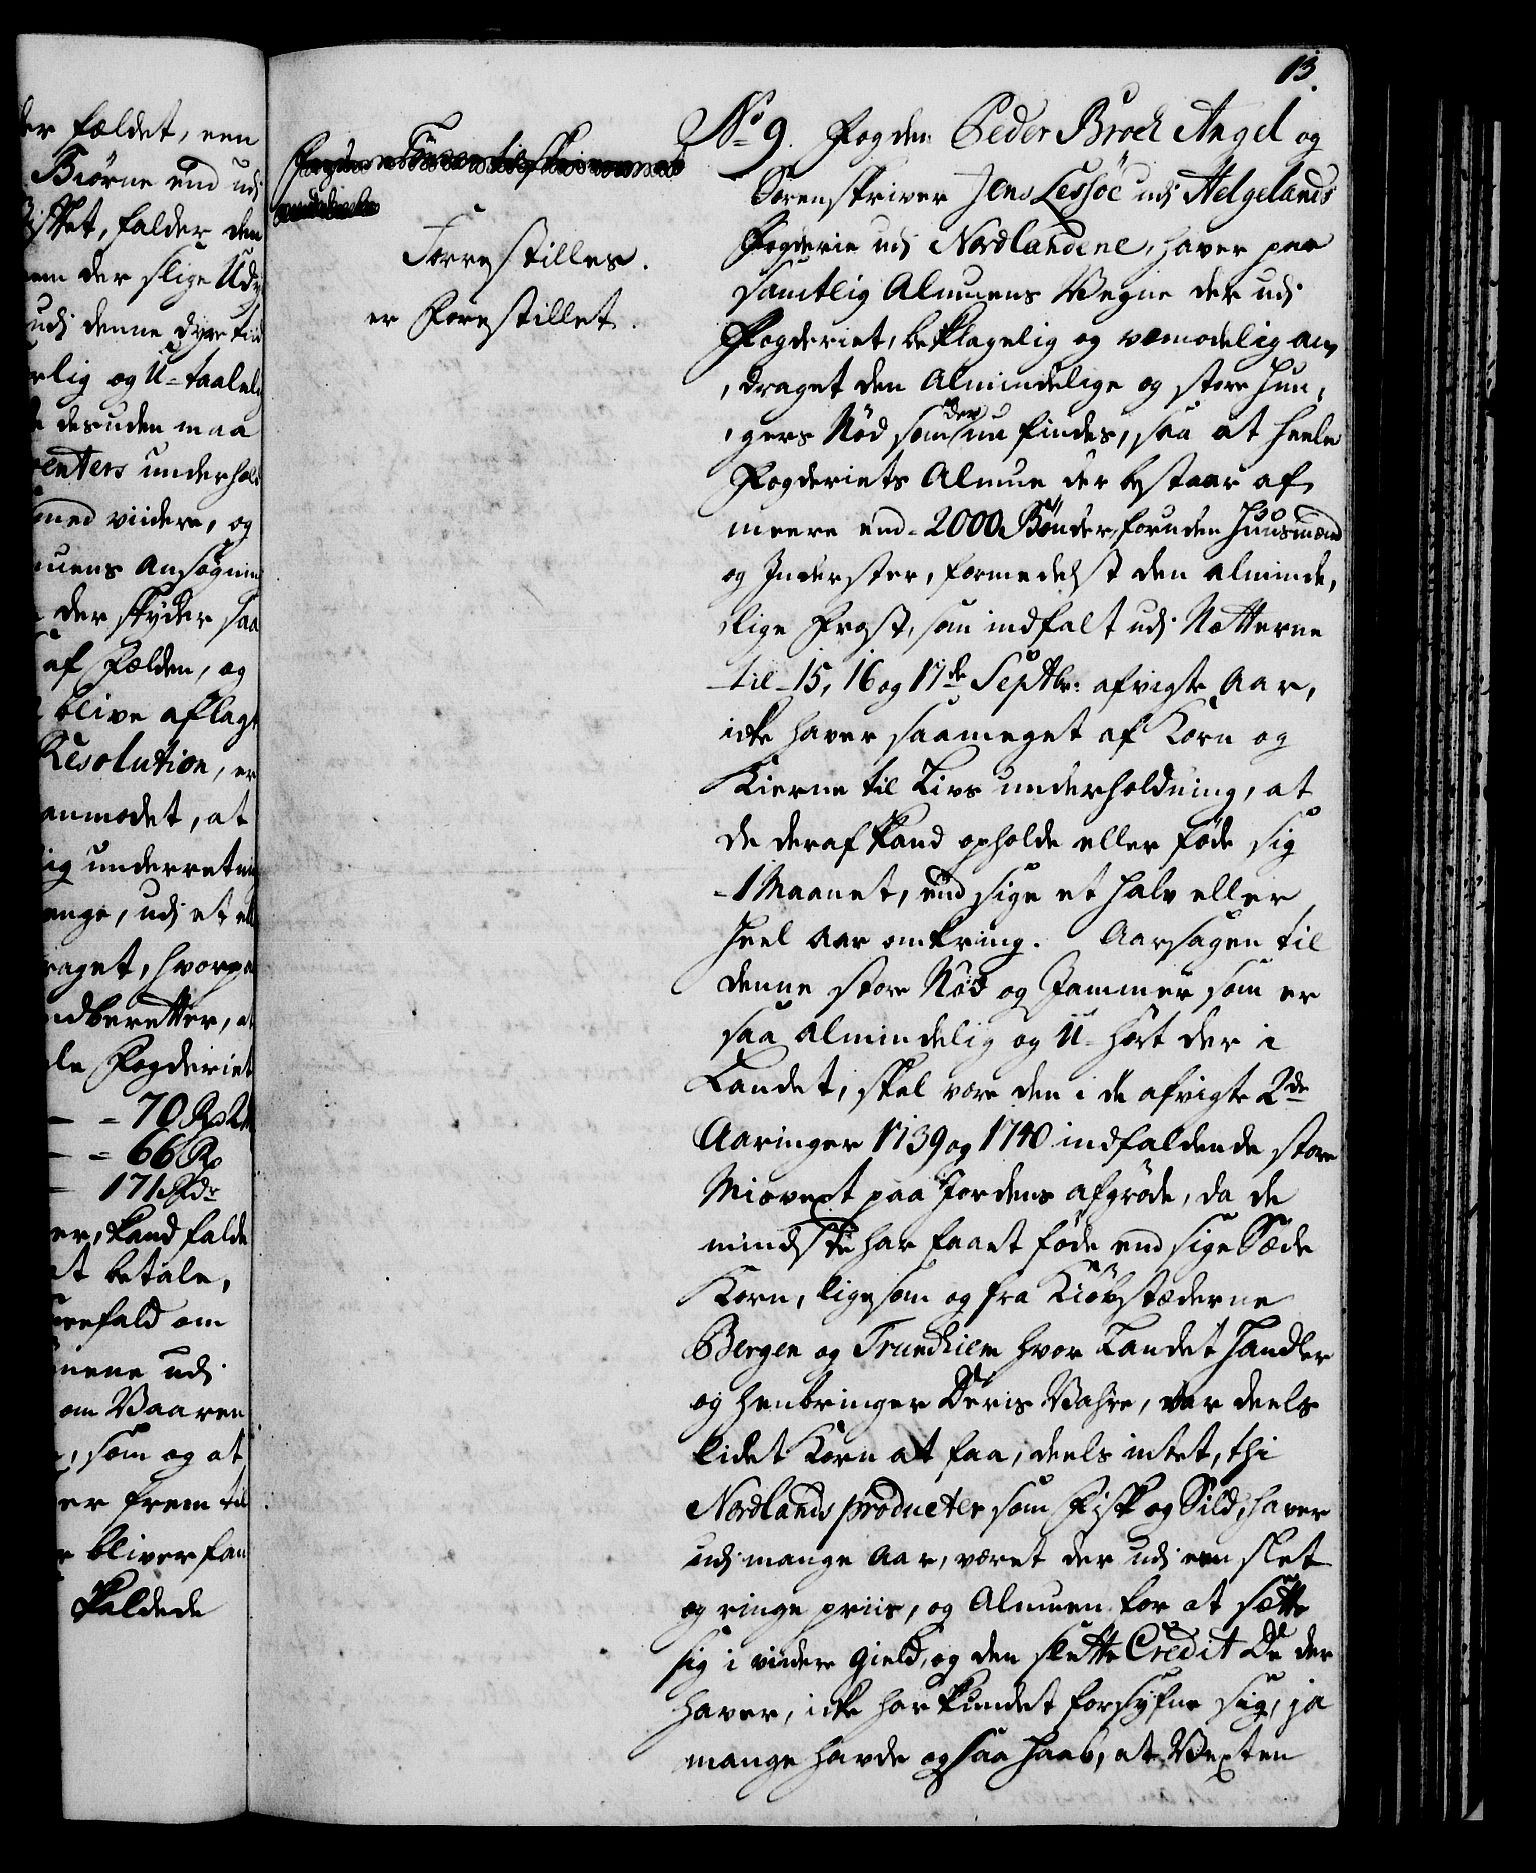 er fældet, een
Biørne end udj
Skat, falder dem
em der slige Ud
udj denne dyre Tiid
rlig og U-taalelig
desuden maa
enters underhold
med viidere, og
uens Ansøgning
der skyder saa
af Fælden, og
blive aflagt
Resolution, er
anmodet, at
ig underretning
enge, udj et
raget, hvorpaa
ndberetter, at
le Fogderiet
- = 70 Rd
- = 66 Rd
- 171 Rdr
er, kand falde
at betale,
erefald om
nene udj
om Vaaren
, som og at
er frem til
r bliver fan
kaldede
13.
Forrestilles.
er Forestillet.
No 9. Fogden Peder Broch Angel og
Sorenskriver Jens Lessöe udj Helgelands
Fogderie udj Nordlandene, haver paa
samtlig Almuens Vegne der udj
Fogderiet, beklagelig og vemodelig an,
,draget den Almindelige og store Hun,
,gers Nød som der nu findes, saa at heele
Fogderiets Almue der bestaar af
meere end 2000 Bønder, foruden Huusmænd
og Inderster, formedelst den alminde,
,lige Frost, som indfalt udj Nætterne
til 15, 16 og 17de Septbr: afvigte Aar,
icke haver saameget af Korn og
Kierne til Livs underholdning, at
de deraf kand opholde eller føde sig
1 Maanet, end sige et halv eller
heel Aar omkring. Aarsagen til
denne store Nød og Jammer som er
saa almindelig og U-hørt der i
Landet, skal være den i de afvigte 2de
Aaringer 1739 og 1740 indfaldende store
Misvext paa Jordens afgrøde, da de
mindste har faaet føde end sige Sæde
Korn, ligesom og fra Kiøbstæderne
Bergen og Trundhiem hvor Landet Handler
og henbringer Deris Vahre, var deels
lidet Korn at faa, deels intet, thi
Nordlands producter som Fisk og Sild, haver
udj mange Aar, været der udj een slet
og ringe priis, og Almuen for at sætte
sig i viidere Gield, og den slette Credit De der
haver, icke har kundet forsyfne sig, ja
mange havde ogsaa haab, at Vexten